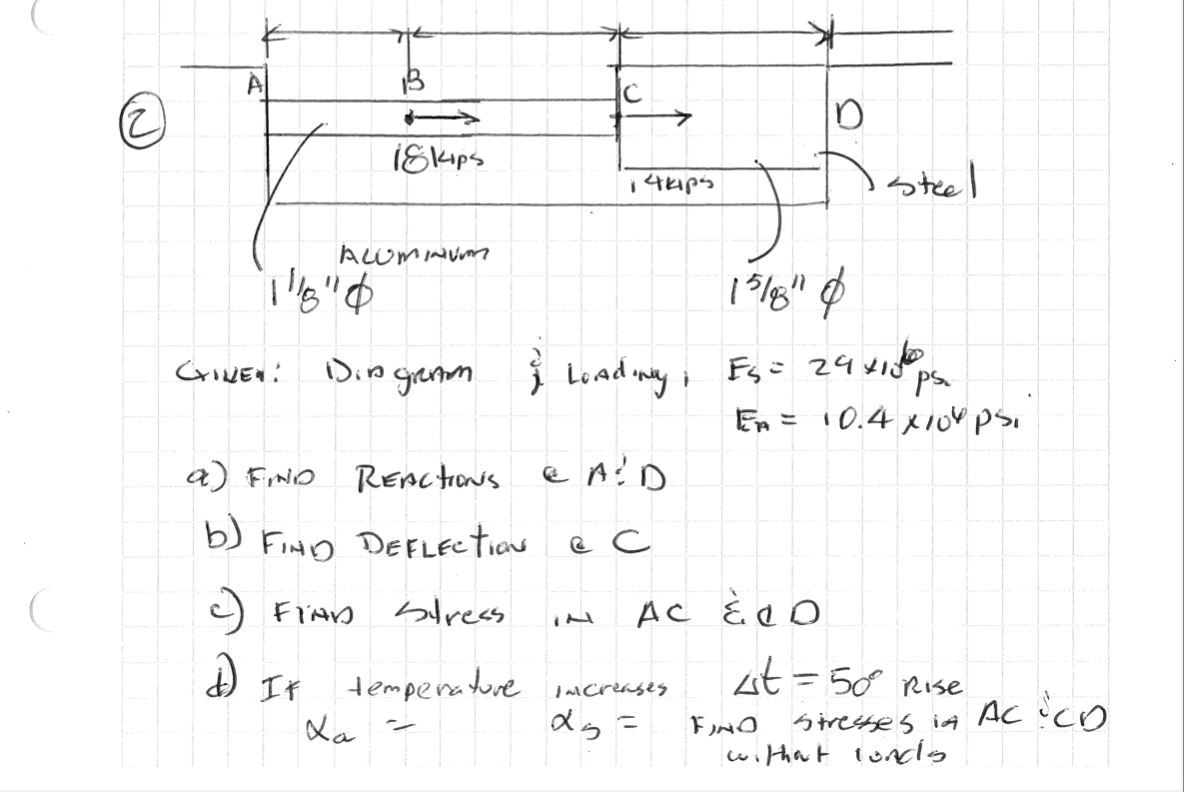 A
B
C
D
2
18 kips
14 kips
Steel
ALUMINUM
1 1/8" ϕ
1 5/8" ϕ
GIVEN: Diagram & Loading; Es = 29 x10⁶ psi
EA = 10.4 x10⁶ psi
a) FIND REACTIONS @ A & D
b) FIND DEFLECTION @ C
c) FIND Stress IN AC & CD
d) If temperature increases Δt = 50° RISE
αa = αs = FIND stresses in AC & CD
without loads